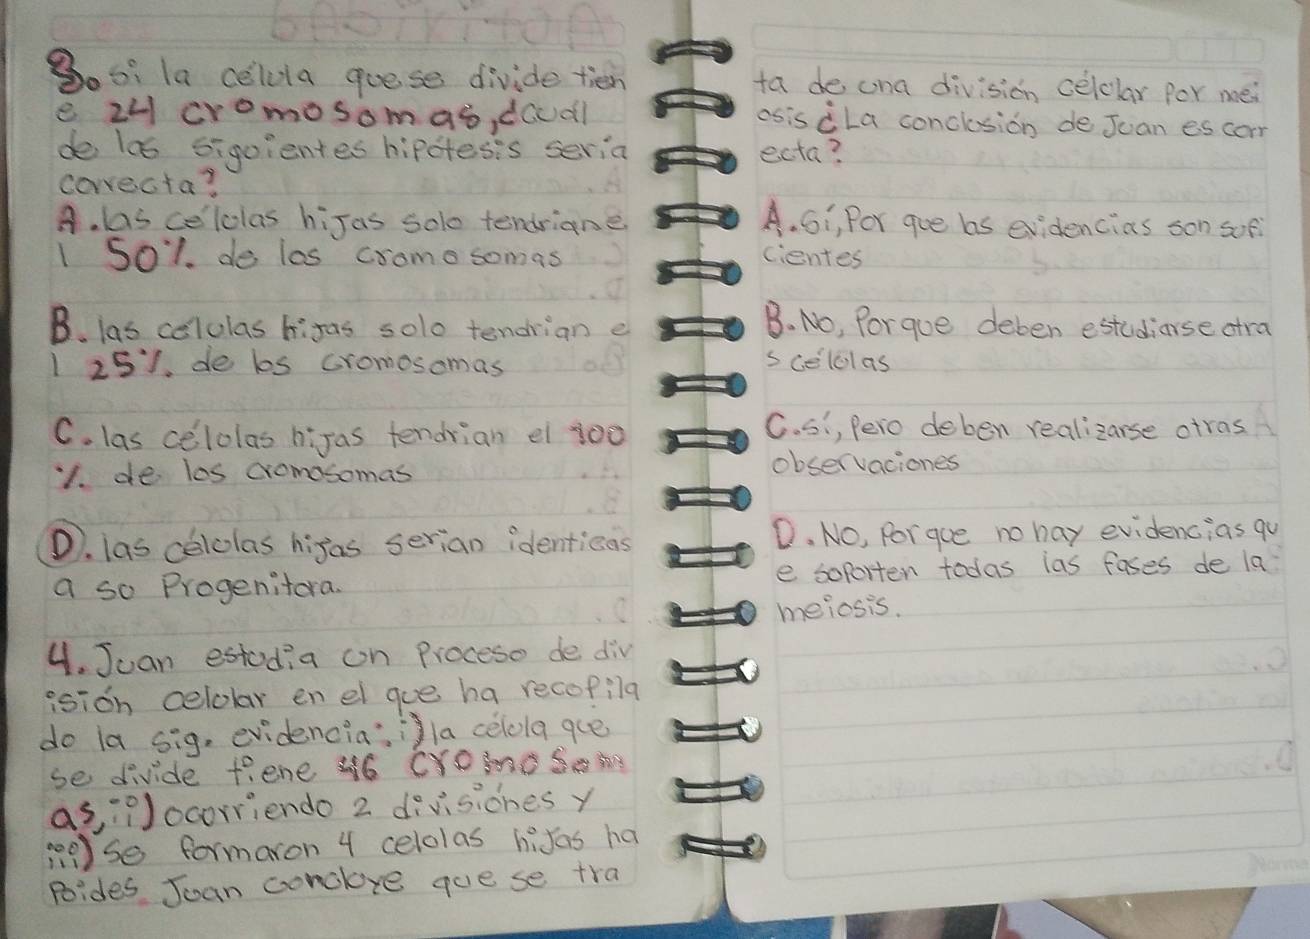 3. si la célula que se divide tien
e 24 cromosomas, ¿cuál
de las siguientes hipótesis sería
correcta?
A. las células hijas solo tendrian e
l 50% de los cromosomas
B. las celulas hijas solo tendrian e
l 25%. de los cromosomas
C. las células hijas tendrian el 100
%. de los cromosomas
D. las células hijas serian identicas
a su Progenitora.
4. Juan estudia un Proceso de div
isión celular en el que ha recopila
do la sig. evidencia: i) la célula que
se divide tiene 46 cromosom
as, ii) ocurriendo 2 divisiónes y
iii) se formaron 4 celulas hijas ha
Poides. Juan concluye que se tra
ta de una división célular por mei
osis ¿La conclusión de Juan es corr
ecta?
A. Sí, Por que las evidencias son sufi
cientes
B. No, Porque deben estudiarse otra
s células
C. sí, Pero deben realizarse otras
observaciones
D. No, Porque no hay evidencias qu
e soporten todas las fases de la
meiosis.